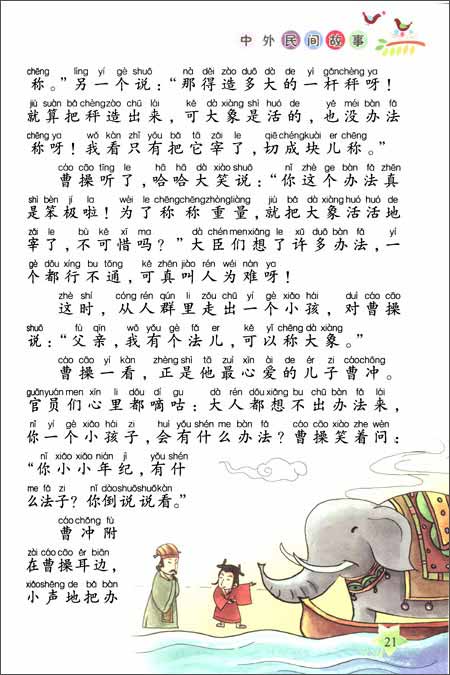 中外民间故事
chēng lìng yí gè shuō nà děi zào duō dà de yì gǎn chèng ya
称。”另一个说：“那得造多大的一杆秤呀！
jiù suàn bǎ chèng zào chū lái kě dà xiàng shì huó de yě méi bàn fǎ
就算把秤造出来，可大象是活的，也没办法
chēng ya wǒ kàn zhǐ yǒu bǎ tā zǎi le qiē chéng kuài er chēng
称呀！我看只有把它宰了，切成块儿称。”
cáo cāo tīng le hā hā dà xiào shuō nǐ zhè ge bàn fǎ zhēn
曹操听了，哈哈大笑说：“你这个办法真
shì bèn jí la wèi le chēng chēng zhòng liàng jiù bǎ dà xiàng huó huó de
是笨极啦！为了称称重量，就把大象活活地
zǎi le bù kě xī ma dà chén men xiǎng le xǔ duō bàn fǎ yí
宰了，不可惜吗？”大臣们想了许多办法，一
gè dōu xíng bu tōng kě zhēn jiào rén wéi nán ya
个都行不通，可真叫人为难呀！
zhè shí cóng rén qún li zǒu chū yí gè xiǎo hái duì cáo cāo
这时，从人群里走出一个小孩，对曹操
shuō fù qin wǒ yǒu gè fǎ er kě yǐ chēng dà xiàng
说：“父亲，我有个法儿，可以称大象。”
cáo cāo yí kàn zhèng shì tā zuì xīn ài de ér zi cáo chōng
曹操一看，正是他最心爱的儿子曹冲。
guān yuán men xīn li dōu dí gu dà rén dōu xiǎng bu chū bàn fǎ lái
官员们心里都嘀咕：大人都想不出办法来，
nǐ yí gè xiǎo hái zi huì yǒu shén me bàn fǎ cáo cāo xiào zhe wèn
你一个小孩子，会有什么办法？曹操笑着问：
nǐ xiǎo xiǎo nián jì yǒu shén
“你小小年纪，有什
me fǎ zi nǐ dào shuō shuō kàn
么法子？你倒说说看。”
cáo chōng fù
曹冲附
zài cáo cāo ěr biān
在曹操耳边，
xiǎo shēng de bǎ bàn
小声地把办
21